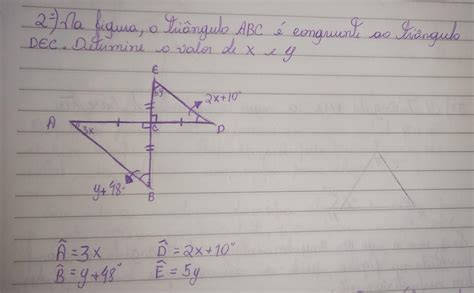 2ª) Na figura, o triângulo ABC é congruente ao triângulo
DEC. Determine o valor de x e y
E
5y
2x+10°
A
3x
C
D
y+48°
B
Â = 3x
D̂ = 2x+10°
B̂ = y+48°
Ê = 5y